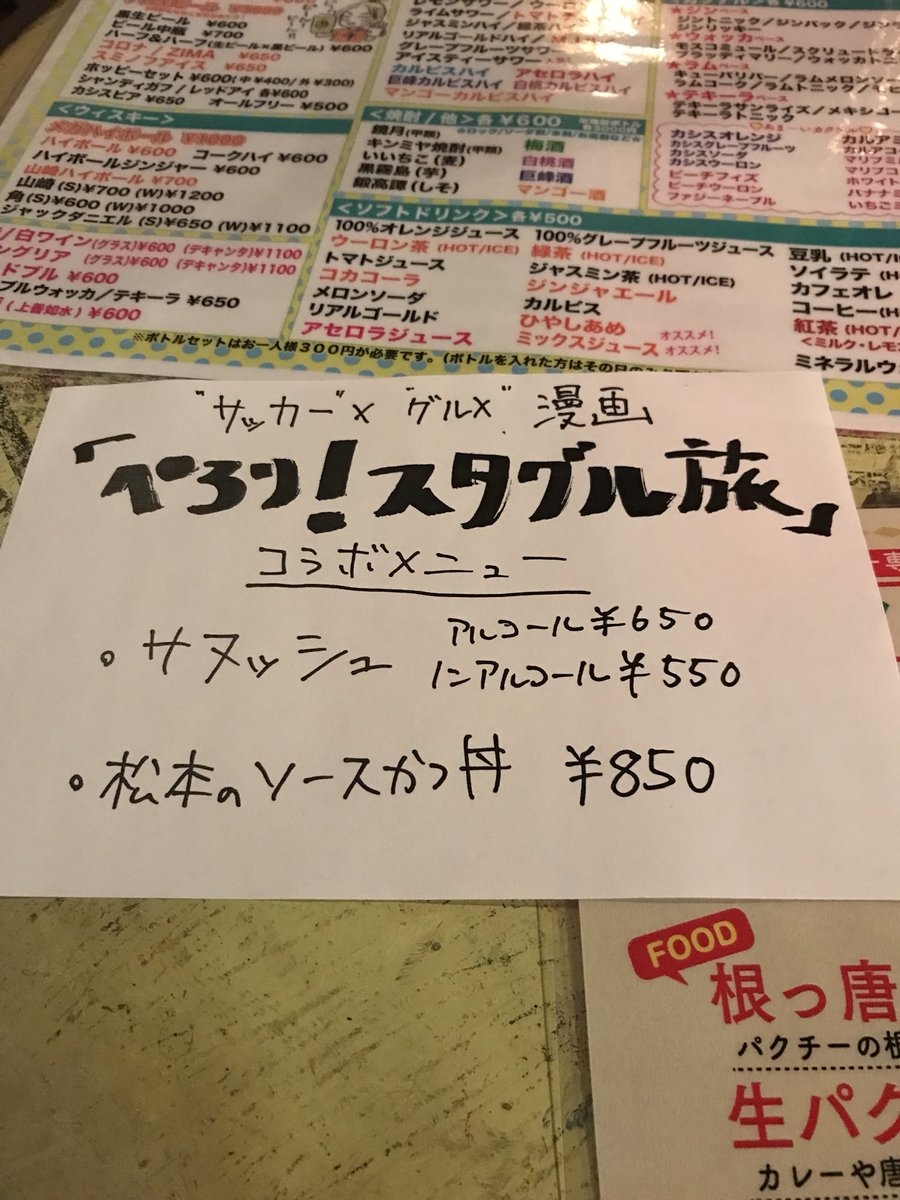 黒生ビール ¥600
ビール中瓶 ¥700
ハーフ&ハーフ(生ビール×黒ビール) ¥600
コロナ/ZIMA ¥650
スミノフアイス ¥650
ホッピーセット ¥600(中¥400/外¥300)
シャンディガフ/レッドアイ 各¥600
カシスビア ¥650 オールフリー ¥500
<ウィスキー>
ハイボール ¥600 コークハイ ¥600
ハイボールジンジャー ¥600
山崎ハイボール ¥700
山崎(S)¥700 (W)¥1200
角(S)¥600 (W)¥1000
ジャックダニエル (S)¥650 (W)¥1100
/白ワイン(グラス)¥600 (デキャンタ)¥1100
ングリア (グラス)¥600 (デキャンタ)¥1100
ドブル ¥600
ブルウォッカ/テキーラ ¥650
(上善如水)¥600
ライムサワー/トマト
ジャスミンハイ/緑茶
リアルゴールドハイ/
グレープフルーツサワー
アイスティーサワー
カルピスハイ アセロラハイ
巨峰カルピスハイ 白桃カルピスハイ
マンゴーカルピスハイ
<焼酎/他>各¥600
鏡月(甲類)
キンミヤ焼酎(甲類) 梅酒
いいちこ(麦) 白桃酒
黒霧島(芋) 巨峰酒
鍛高譚(しそ) マンゴー酒
★ジンベース
ジントニック/ジンバック/ジン
★ウォッカベース
モスコミュール/スクリュードラ
★ラムベース
キューバリバー/ラムメロンソー
★テキーラベース
テキーラサンライズ/メキシコ
テキーラトニック
カシスオレンジ
カシスグレープフルーツ
カシスソーダ
カシスウーロン
ピーチフィズ
ピーチウーロン
ファジーネーブル
<ソフトドリンク>各¥500
100%オレンジジュース 100%グレープフルーツジュース 豆乳 (HOT/I
ウーロン茶 (HOT/ICE) 緑茶 (HOT/ICE) ソイラテ (H
トマトジュース ジャスミン茶 (HOT/ICE) カフェオレ
コカコーラ ジンジャエール コーヒー(H
メロンソーダ カルピス 紅茶 (HOT/
リアルゴールド ひやしあめ オススメ! <ミルク・レモ
アセロラジュース ミックスジュース オススメ! ミネラルウ
※ボトルセットはお一人様300円が必要です。(ボトルを入れた方は
"サッカー"×"グルメ"漫画
「ぺろり!スタグル旅」
コラボメニュー
。サヌッシュ アルコール¥650
ノンアルコール¥550
。松本のソースかつ丼 ¥850
FOOD
根っ唐
パクチーの根
生パク
カレーや唐